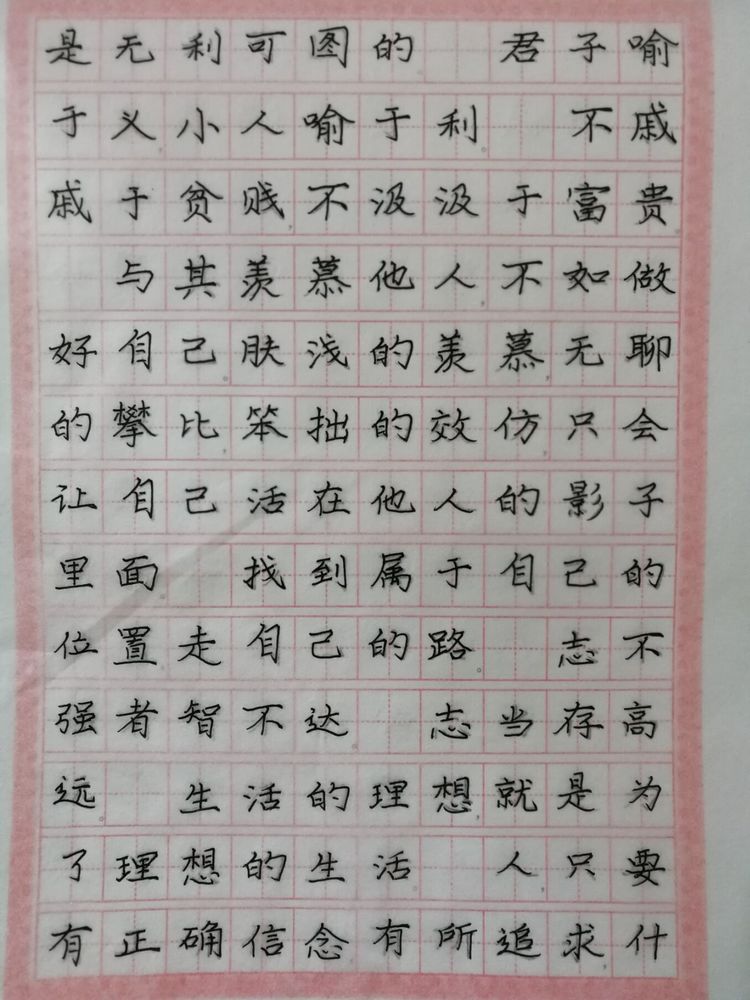 是无利可图的 君子喻
于义小人喻于利 不戚
戚于贫贱不汲汲于富贵
与其羡慕他人不如做
好自己肤浅的羡慕,无聊
的攀比笨拙的效仿只会
让自己活在他人的影子
里面 找到属于自己的
位置走自己的路。 志不
强者智不达 志当存高
远 生活的理想就是为
了理想的生活。 人只要
有正确信念有所追求什